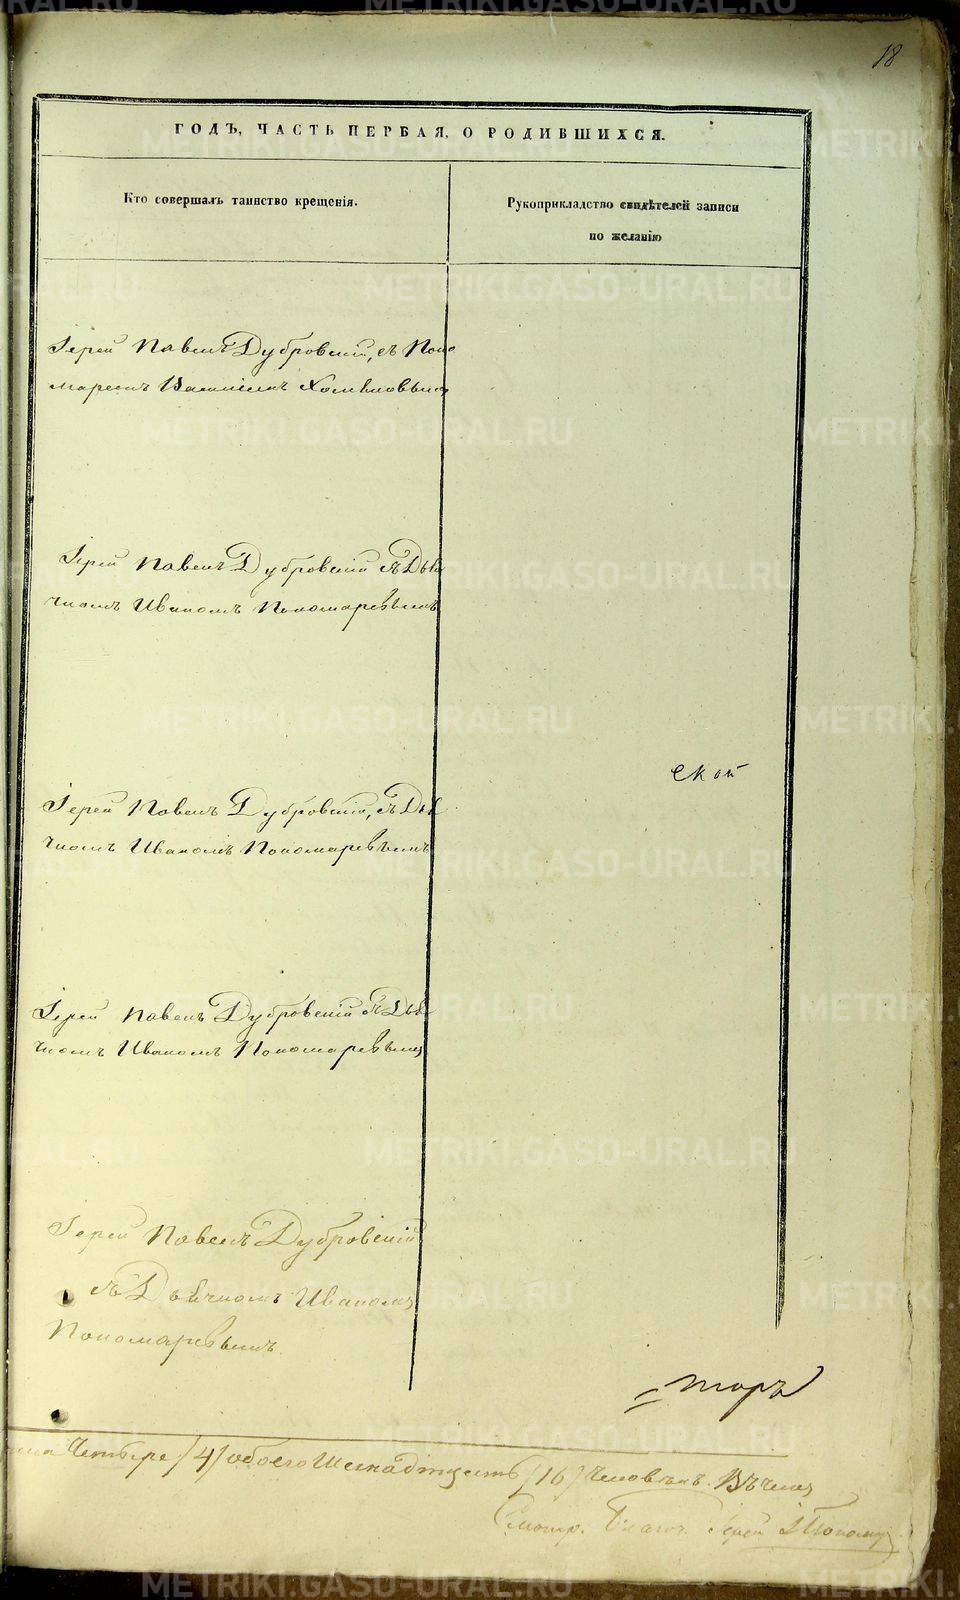 18
ГОДЪ, ЧАСТЬ ПЕРВАЯ, О РОДИВШИХСЯ.
Кто совершалъ таинство крещенія.
Рукоприкладство свидѣтелей записи
по желанію
Іерей Павелъ Дубровскій, съ Поно
маремъ Василіемъ
Іерей Павелъ Дубровскій съ Дья
чкомъ Иваномъ Пономаревымъ
ской
Іерей Павелъ Дубровскій, съ Дья
чкомъ Иваномъ Пономаревымъ
Іерей Павелъ Дубровскій съ Дья
чкомъ Иваномъ Пономаревымъ
Іерей Павелъ Дубровскій
съ Дьячкомъ Иваномъ
Пономаревымъ.
=торъ
Четыре /4/ обоего Шеснадцать /16/ Человѣкъ.
Смотр. Благоч. Іерей
METRIKI.GASO-URAL.RU